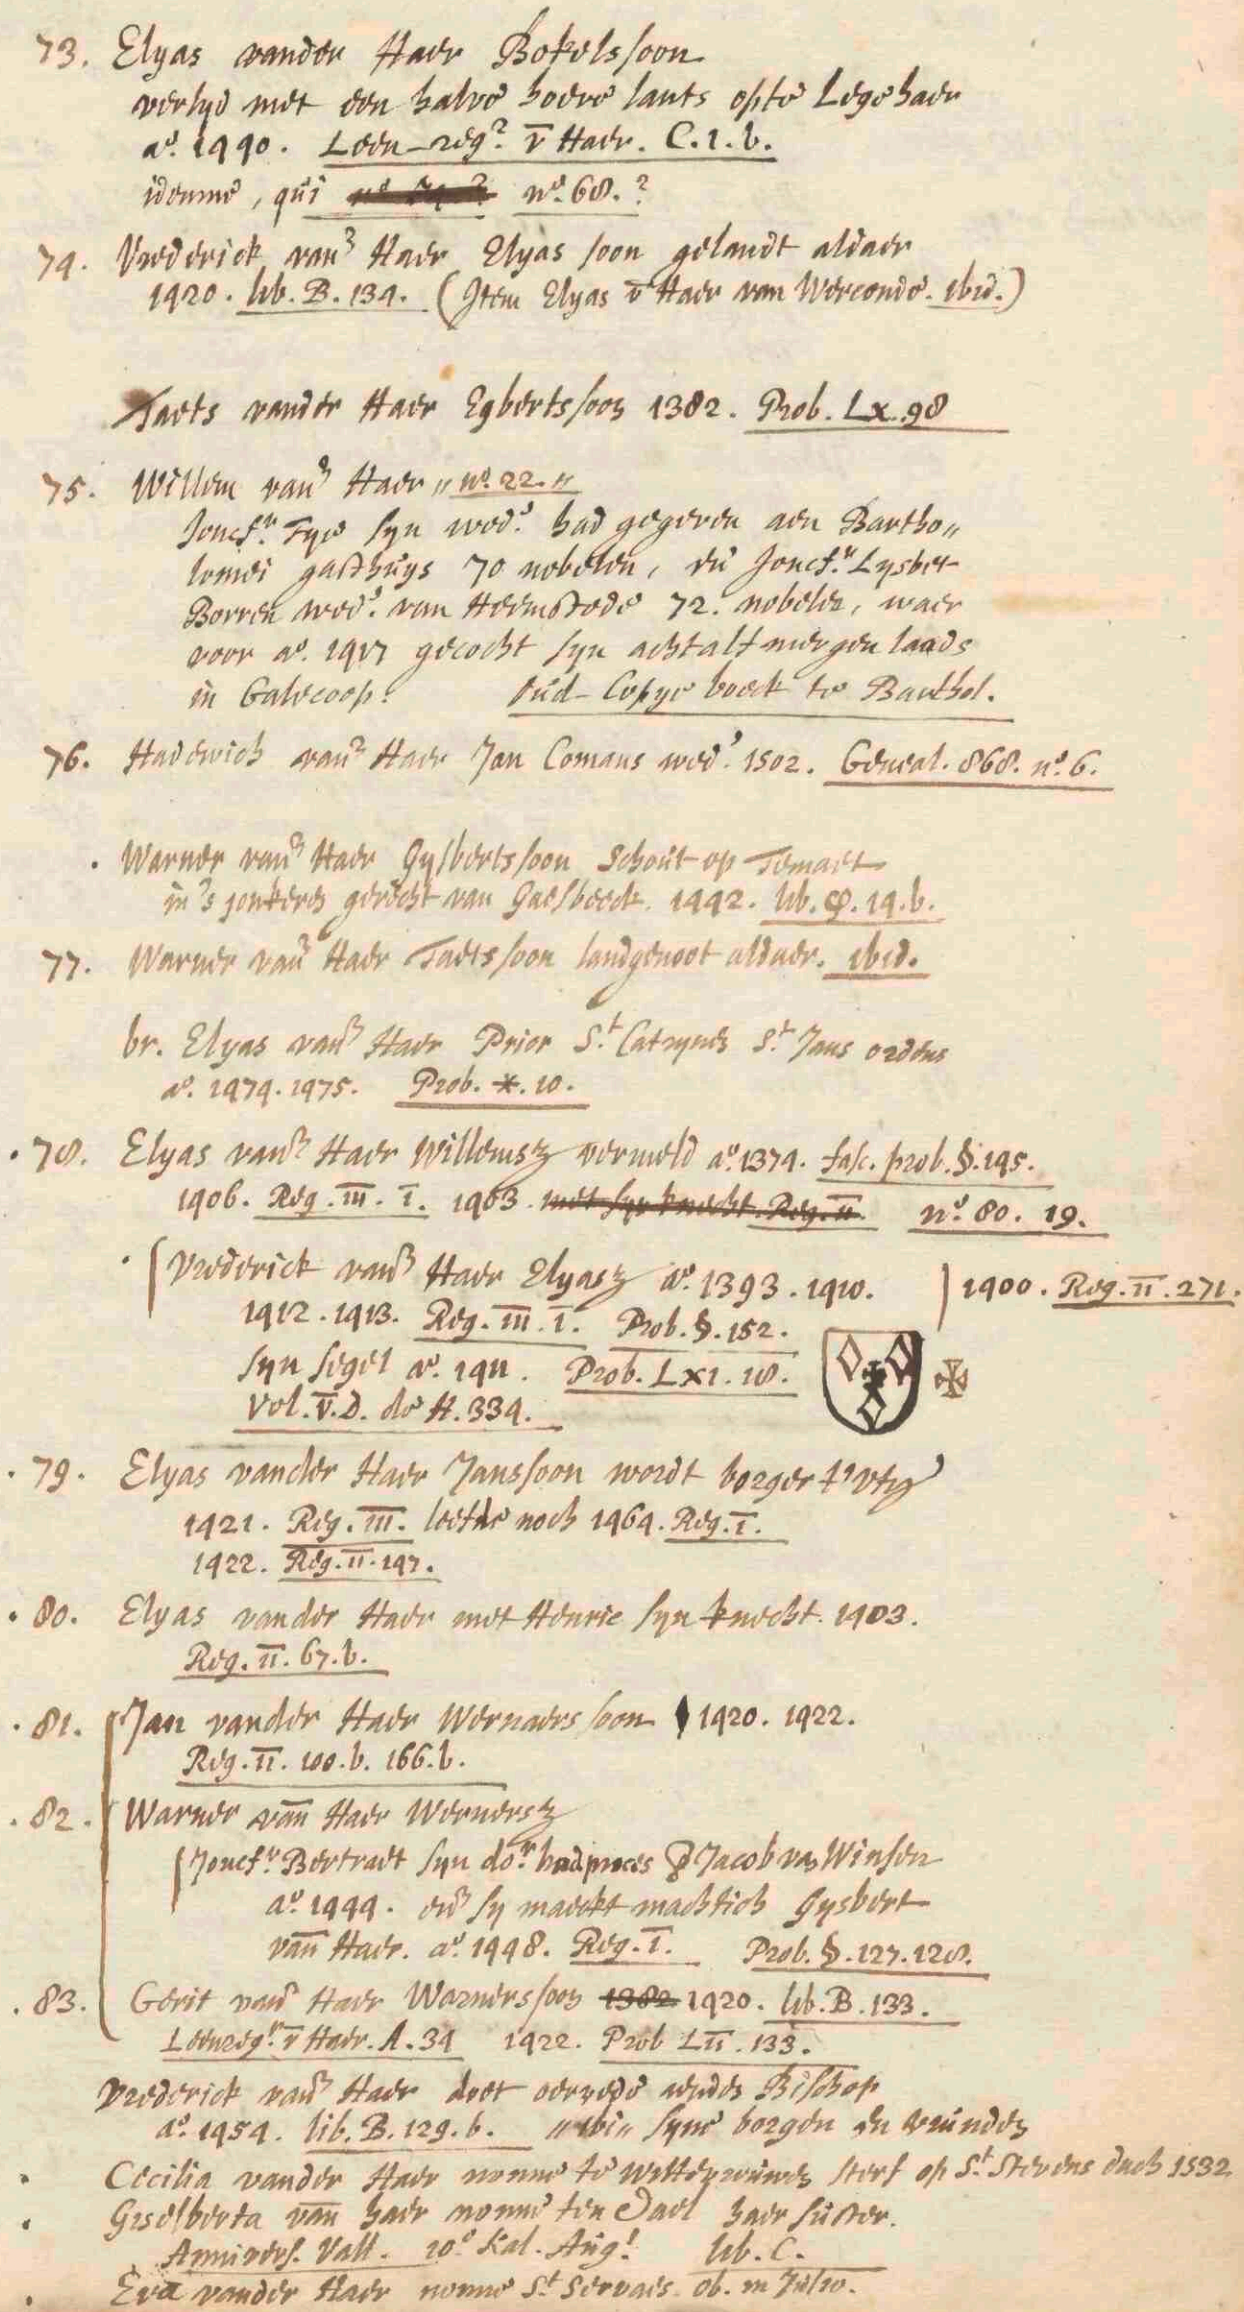 73. Elyas vander Haer Bokelssoon
verlyd met een halve hoeve lants opte Legehaer
aº. 1440. Leen-reg? v̄ Haer. C.1.b.
idemne, qui nº. 68.?
74. Vrederick van? Haer Elyas soon gelandt aldaer
1420. lib. B. 134. (Item Elyas v̄ Haer van Werconde. ibid.)
Taets vander Haer Egbertssoon 1382. Prob. Lx.98
75. Willem van? Haer „ nº. 22. „
Joncfr. Fye syn wed? had gegeven aen Bartho„
lomei gasthuys 70 nobelen, en Joncfr. Lysbet
Borren wed? van Heemstede 72. nobelen, waer
voor aº. 1417 gecocht syn achtalf mergen lands
in Galecoop. Oud-Copye boeck te Barthol.
76. Hadewich van? Haer Jan Comans wed? 1502. Geneal. 868. nº. 6.
. Warner van? Haer Gysbertssoon Schout op Temaet
in 's jonkers gerecht van Gaesbeeck. 1442. lib. φ. 14.b.
77. Warner van? Haer Taetssoon landgenoot aldaer. ibid.
br. Elyas van? Haer Prior St. Catrynes St. Jans ordens
aº. 1474. 1475. Prob. *. 10.
. 78. Elyas van? Haer Willemsz vermeld aº. 1374. fasc. prob. §. 145.
1406. Reg. III. I. 1403. met syn knecht. Reg. II. nº. 80. 19.
. Vrederick van? Haer Elyasz aº. 1393. 1410. | 1400. Reg. II. 271.
1412. 1413. Reg. III. I. Prob. §. 152.
syn segel aº. 1411. Prob. Lx1. 18.
Vol. V. D. de H. 334.
. 79. Elyas vander Haer Janssoon wordt borger t'Vt?
1421. Reg. III. leefde noch 1464. Reg. I.
1422. Reg. II. 147.
. 80. Elyas vander Haer met Henric syn knecht. 1403.
Reg. II. 67.b.
. 81. Jan vander Haer Wernaers soon 1420. 1422.
Reg. II. 100.b. 166.b.
. 82. Warner van Haer Wernersz
Joncfr. Bertraet syn dor. had proces Jacob van Winsen
aº. 1444. en? sy maeckt machtich Gysbert
van Haer. aº. 1448. Reg. I. Prob. §. 127. 128.
. 83. Gerit van? Haer Warnerssoon 1382 1420. lib. B. 133.
Leenregr. v̄ Haer. A. 34 1422. Prob LII. 133.
Vrederick van? Haer doet oervede Bisschop
aº. 1454. lib. B. 129.b. „ ibi „ syne borgen en vrunden
. Cecilia vander Haer nonne te Wittevrouwen sterf op St. Stevens dach 1532
. Giselberta van haer nonne ten Dael haer suster.
Annivers. Vall. 10º Kal. Aug! lib. C.
. Eva vander Haer nonne St. Servaes. ob. in Julio.